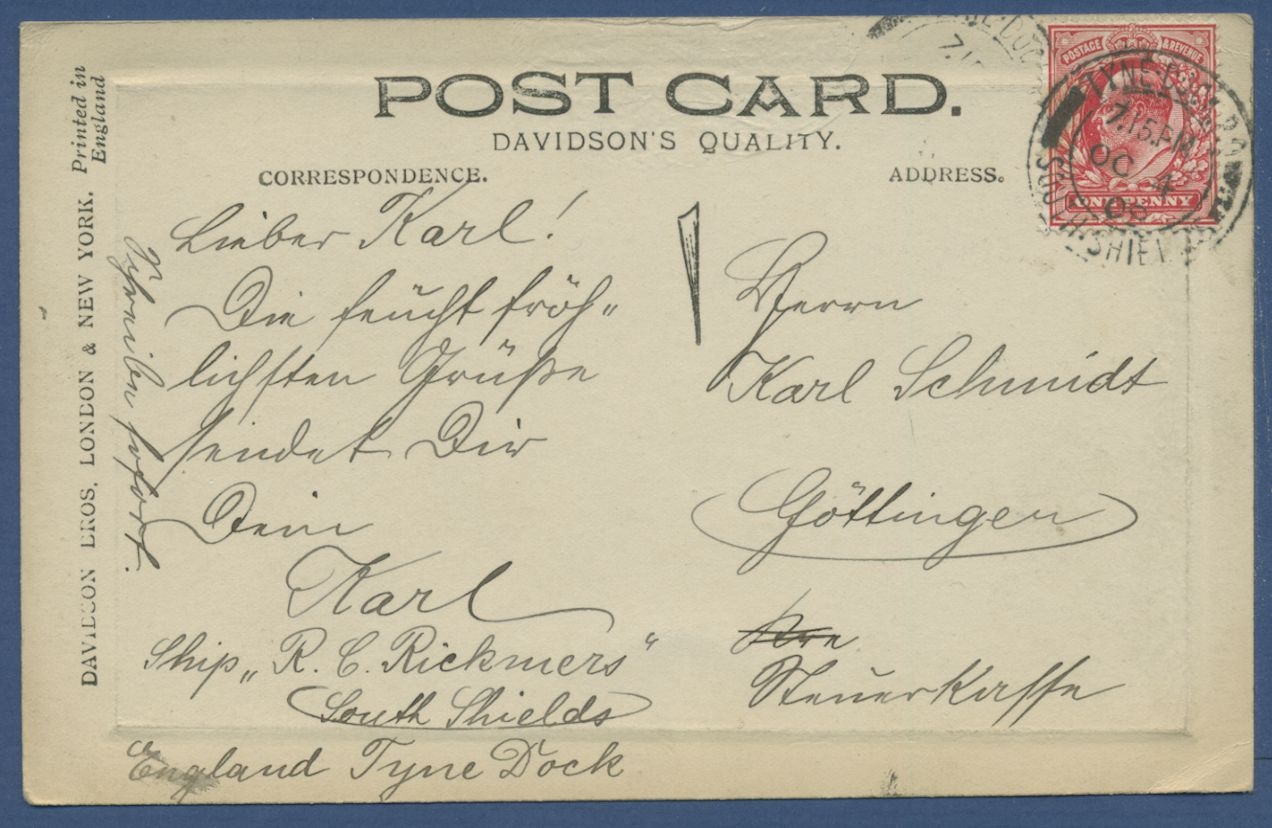 POST CARD.
DAVIDSON'S QUALITY.
CORRESPONDENCE.
ADDRESS.
Lieber Karl!
Die feucht fröh„
lichsten Grüße
sendet Dir
Dein
Karl
Ship „R. C. Rickmers"
South Shields
England Tyne Dock
Schreibe sofort.
Herrn
Karl Schmidt
Göttingen
Steuerkasse
DAVIDSON BROS. LONDON & NEW YORK. Printed in
England
POSTAGE & REVENUE
ONE PENNY
TYNE-DOCK
7.15.PM
OC 4
SOUTH-SHIEL